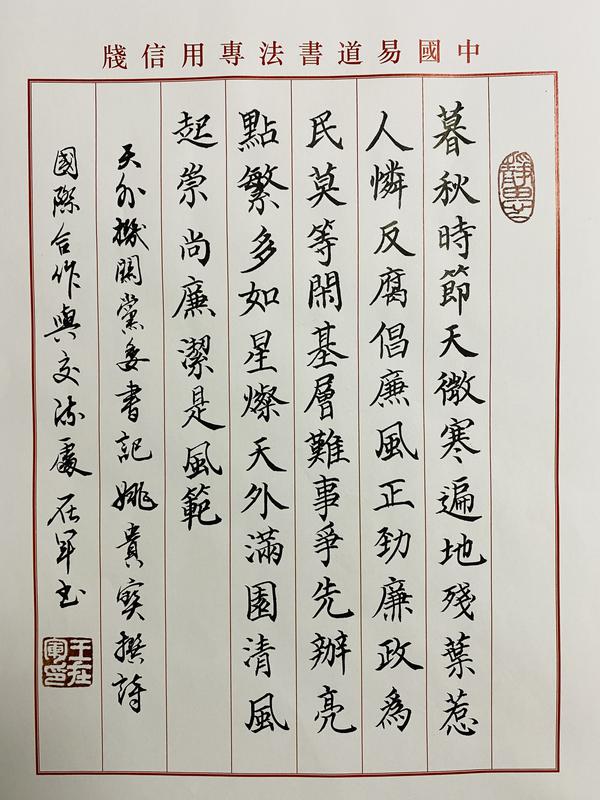 中國易道書法專用信牋
暮秋時節天微寒遍地殘葉惹
人憐反腐倡廉風正勁廉政為
民莫等閑基層難事爭先辦亮
點繁多如星燦天外滿園清風
起崇尚廉潔是風範
天外機關黨委書記姚貴寶撰詩
國際合作與交流處在軍书
在軍印